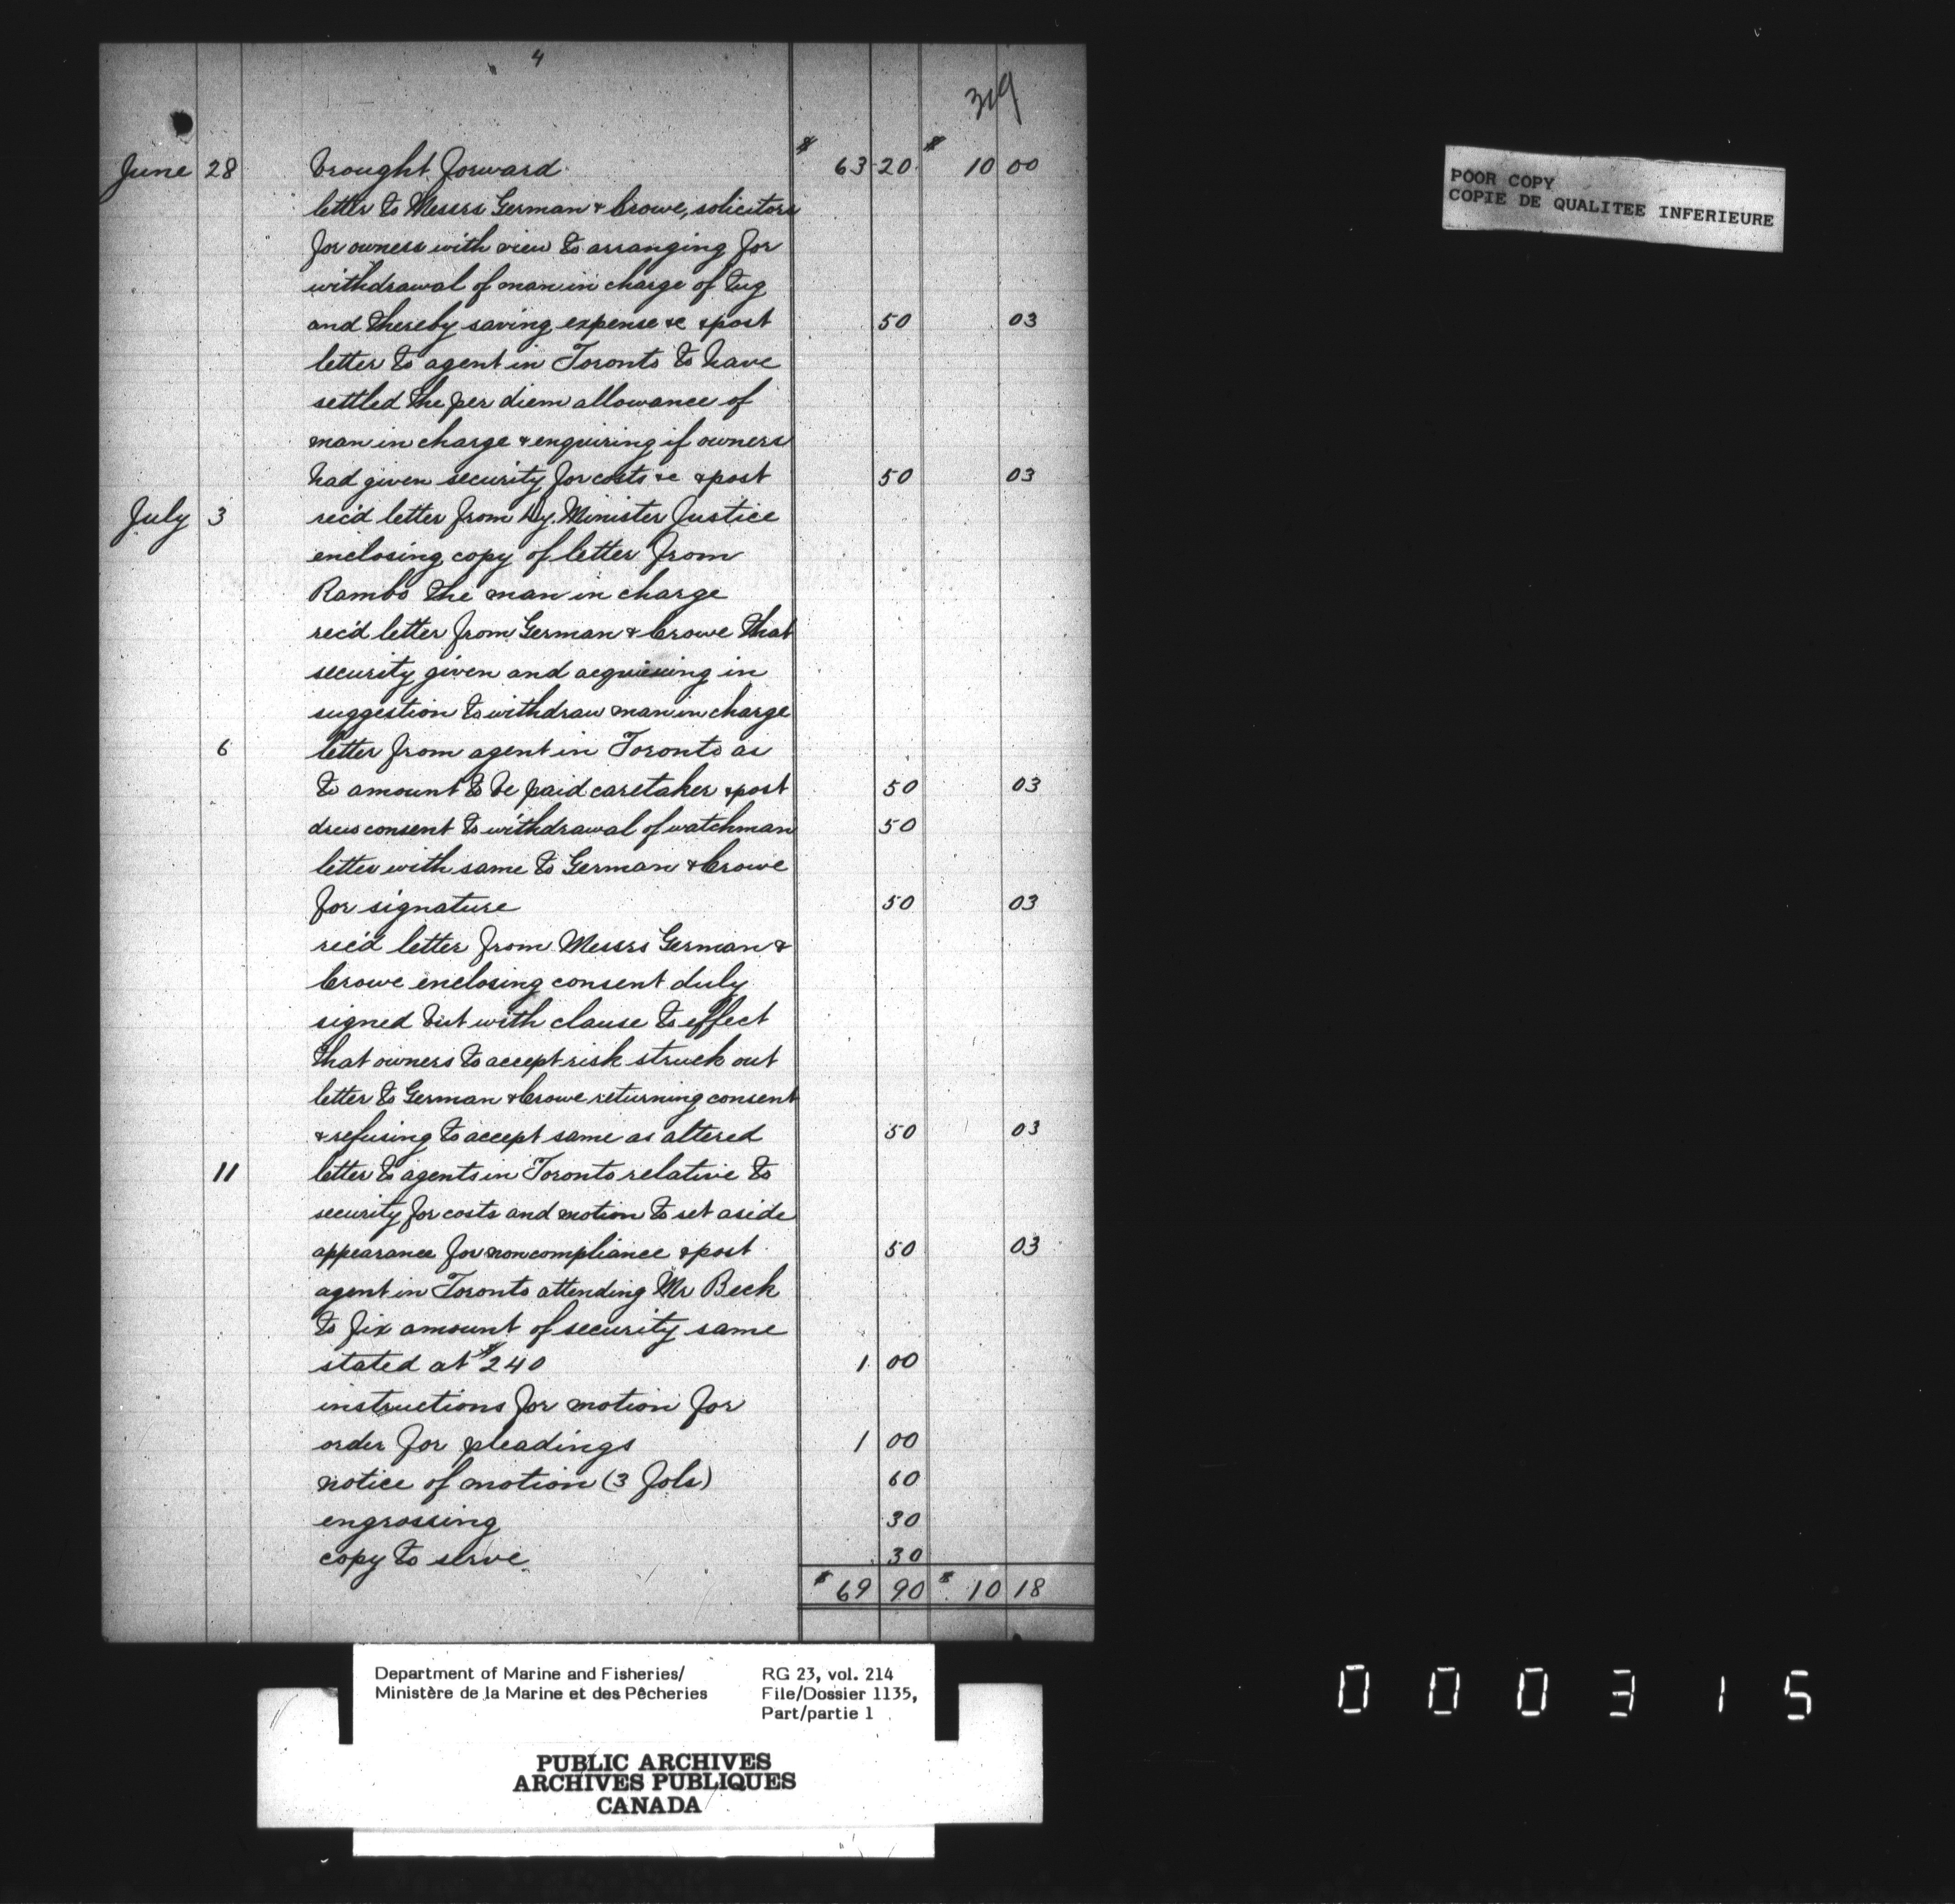 4
319
June 28 brought forward $ 63 20 $ 10 00
letter to Messrs German & Crowe, solicitors
for owners with view to arranging for
withdrawal of man in charge of tug
and thereby saving expense &c & post 50 03
letter to agent in Toronto to have
settled the per diem allowance of
man in charge & enquiring if owners
had given security for costs &c & post 50 03
July 3 rec'd letter from Dy. Minister Justice
enclosing copy of letter from
Rambo the man in charge
rec'd letter from German & Crowe that
security given and acquiesing in
suggestion to withdraw man in charge
6 letter from agent in Toronto as
to amount to be paid caretaker & post 50 03
drew consent to withdrawal of watchman 50
letter with same to German & Crowe
for signature 50 03
rec'd letter from Messrs German &
Crowe enclosing consent duly
signed but with clause to effect
that owners to accept risk struck out
letter to German & Crowe returning consent
& refusing to accept same as altered 50 03
11 letter to agents in Toronto relative to
security for costs and motion to set aside
appearance for noncompliance & post 50 03
agent in Toronto attending Mr Beck
to fix amount of security same
stated at $240 1 00
instructions for motion for
order for pleadings 1 00
notice of motion (3 fols) 60
engrossing 30
copy to serve 30
$ 69 90 $ 10 18
POOR COPY
COPIE DE QUALITEE INFERIEURE
Department of Marine and Fisheries/
Ministère de la Marine et des Pêcheries
RG 23, vol. 214
File/Dossier 1135,
Part/partie 1
PUBLIC ARCHIVES
ARCHIVES PUBLIQUES
CANADA
000315